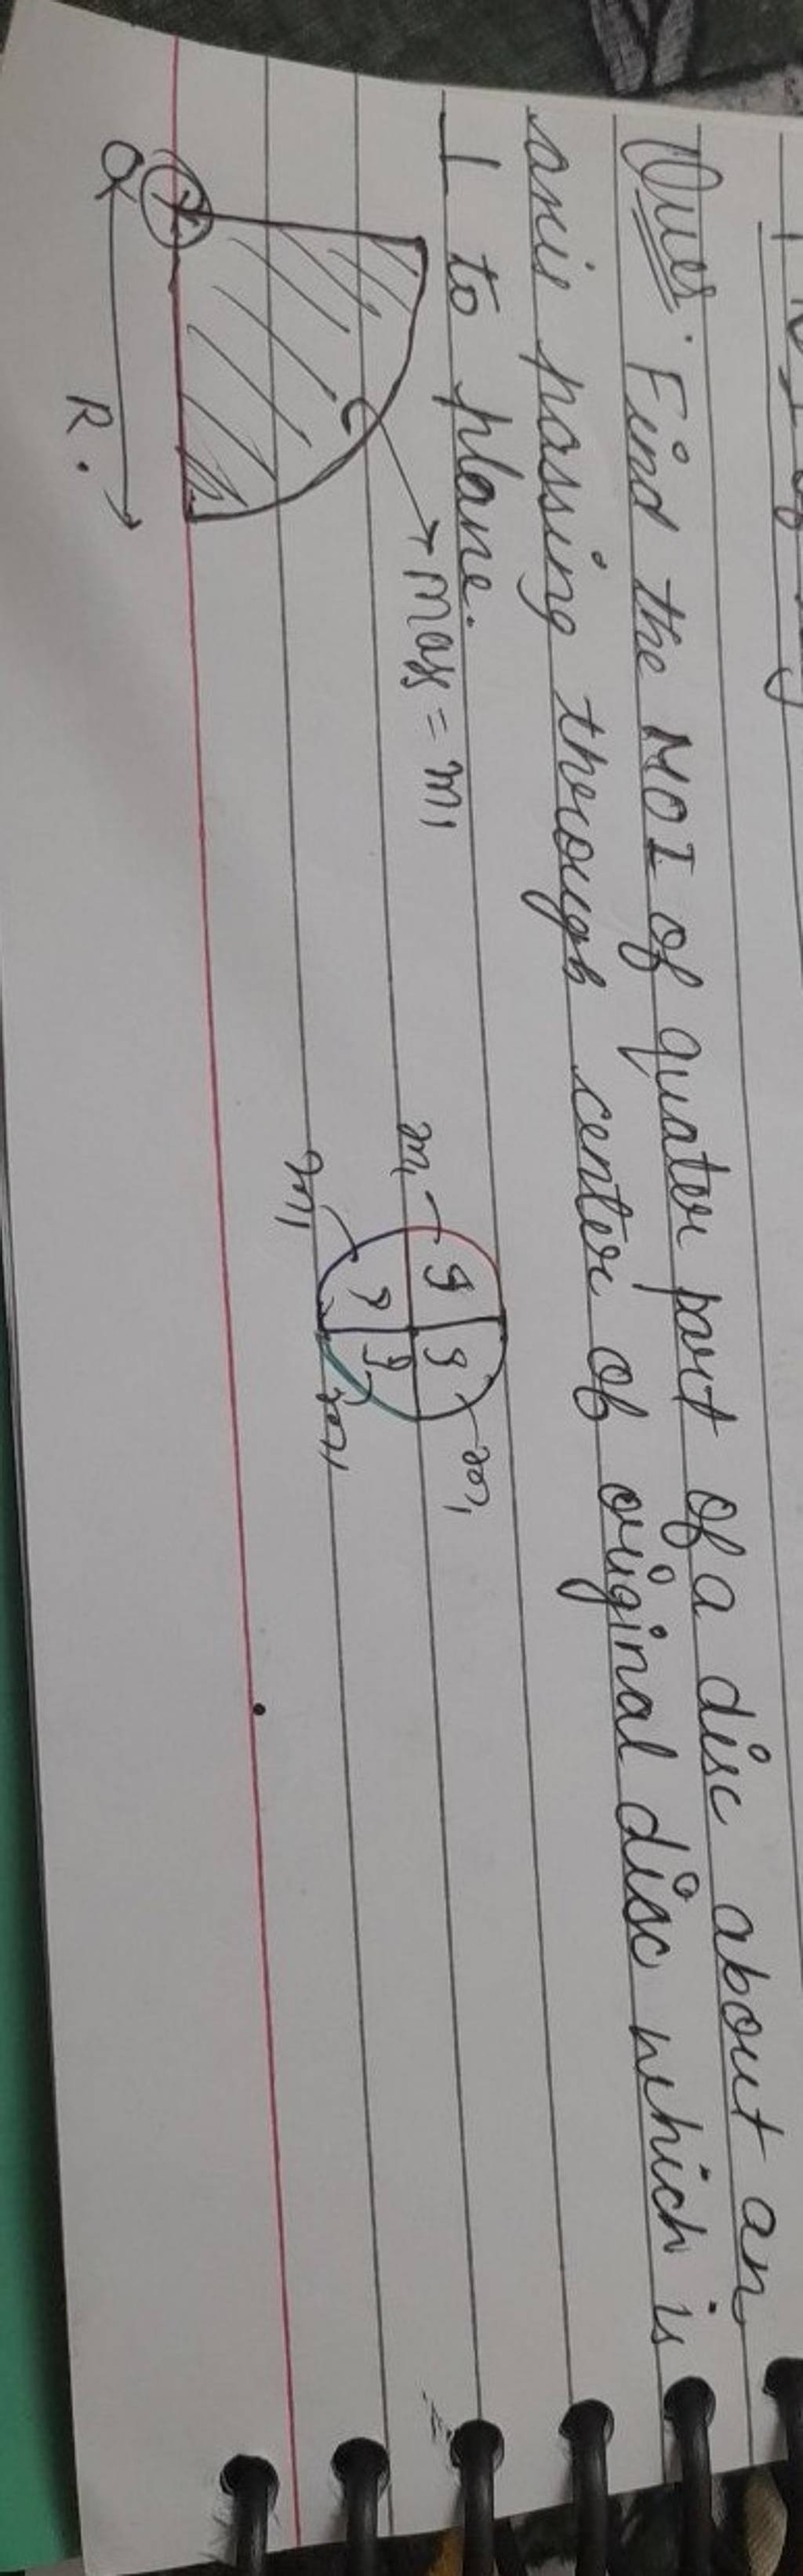 Ques. Find the MOI of quater part of a disc about an
axis passing through center of original disc which is
⊥ to plane.
Mass = m1
R.
m1
m1
m1
m1